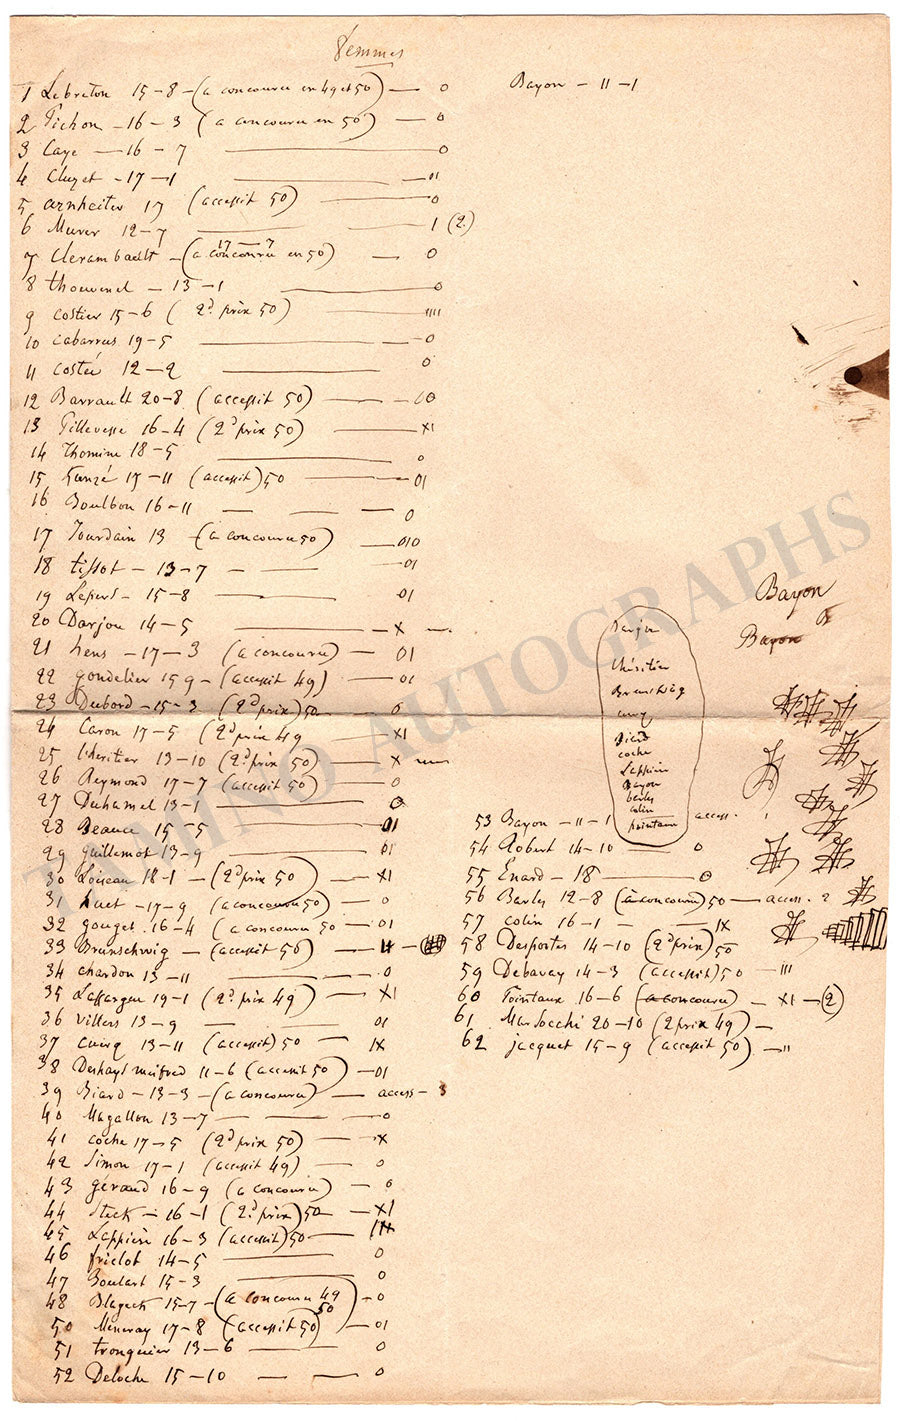 Femmes
1 Lebreton 15-8-(a concouru en 49 et 50) — 0
2 Pichon -16-3 (a concouru en 50) — 0
3 Caye —16-7 — 0
4 Cluzet -17-1 — 01
5 arnheiter 17 (accessit 50) — 0
6 Murer 12-7 — 1 (2)
7 Clerambault -(a concouru en 50) — 0
17-7
8 thouvenel - 13-1 — 0
9 Costier 15-6 (2d prix 50) — 1111
10 Cabarrus 19-5 — 0
11 Costé 12-2 — 0
12 Barrault 20-8 (accessit 50) — 00
13 Pillevesse 16-4 (2d prix 50) — XI
14 Thomine 18-5 — 0
15 17-11 (accessit) 50 — 01
16 Boulbon 16-11 — 0
17 Jourdain 13 -(a concouru 50) — 010
18 tissot - 13-7 - — 01
19 Lepers- 15-8 — 01
20 Darjou 14-5 — X
21 hens -17-3 (a concouru) — 01
22 gondelier 15 9- (accessit 49) — 01
23 Dubord -15-3 (2d prix) 50 — 0
24 Caron 17-5 (2d prix 49 — XI
25 Lheritier 13-10 (2d prix 50) — X
26 Reymond 17-7 (accessit 50) — 0
27 Duhamel 13-1 — 0
28 Beauce 15-5 — 01
29 guillemot 13-9 — 01
30 Loiseau 18-1 -(2d prix 50) — XI
31 huet -17-9 (a concouru 50) — 0
32 gouget 16-4 (a concouru 50 — 01
33 Brunschwig — (accessit 50) —
34 chardon 13-11 — 0
35 19-1 (2d. prix 49) — XI
36 Villers 13-9 — 01
37 13-11 (accessit) 50 — IX
38 11-6 (accessit 50) — 01
39 Biard -13-3-(a concouru) — access - 3
40 Magallon 13-7 — 0
41 coche 17-5 (2d prix 50) — X
42 Simon 17-1 (accessit 49) — 0
43 géraud 16-9 (a concouru) — 0
44 Steck - 16-1 (2d. prix) 50 — XI
45 Lappiere 16-3 (accessit) 50 —
46 frielot 14-5 — 0
47 Boulart 15-3 — 0
48 15-7-(a concouru 49 50) - 0
50 Meneray 17-8 (accessit 50) — 01
51 tronquier 13-6 — 0
52 Deloche 15-10 — 0
Bayon - 11-1
Bayon
Bayon
Darjou
Lhéritier
Brunschwig
Biard
coche
Lappiere
Bayon
barles
colin
pointaux
53 Bayon - 11-1 access.
54 Robert 14-10 — 0
55 Enard - 18 — 0
56 Barles 12-8 (a concouru) 50 — access. 2
57 colin 16-1 — IX
58 Desportes 14-10 (2d prix) 50
59 Debavay 14-3 (accessit) 50 - 111
60 Pointaux 16-6 (a concouru) - XI - (2)
61 20-10 (2 prix 49) -
62 jacquet 15-9 (accessit 50) - 11
TAMINO AUTOGRAPHS